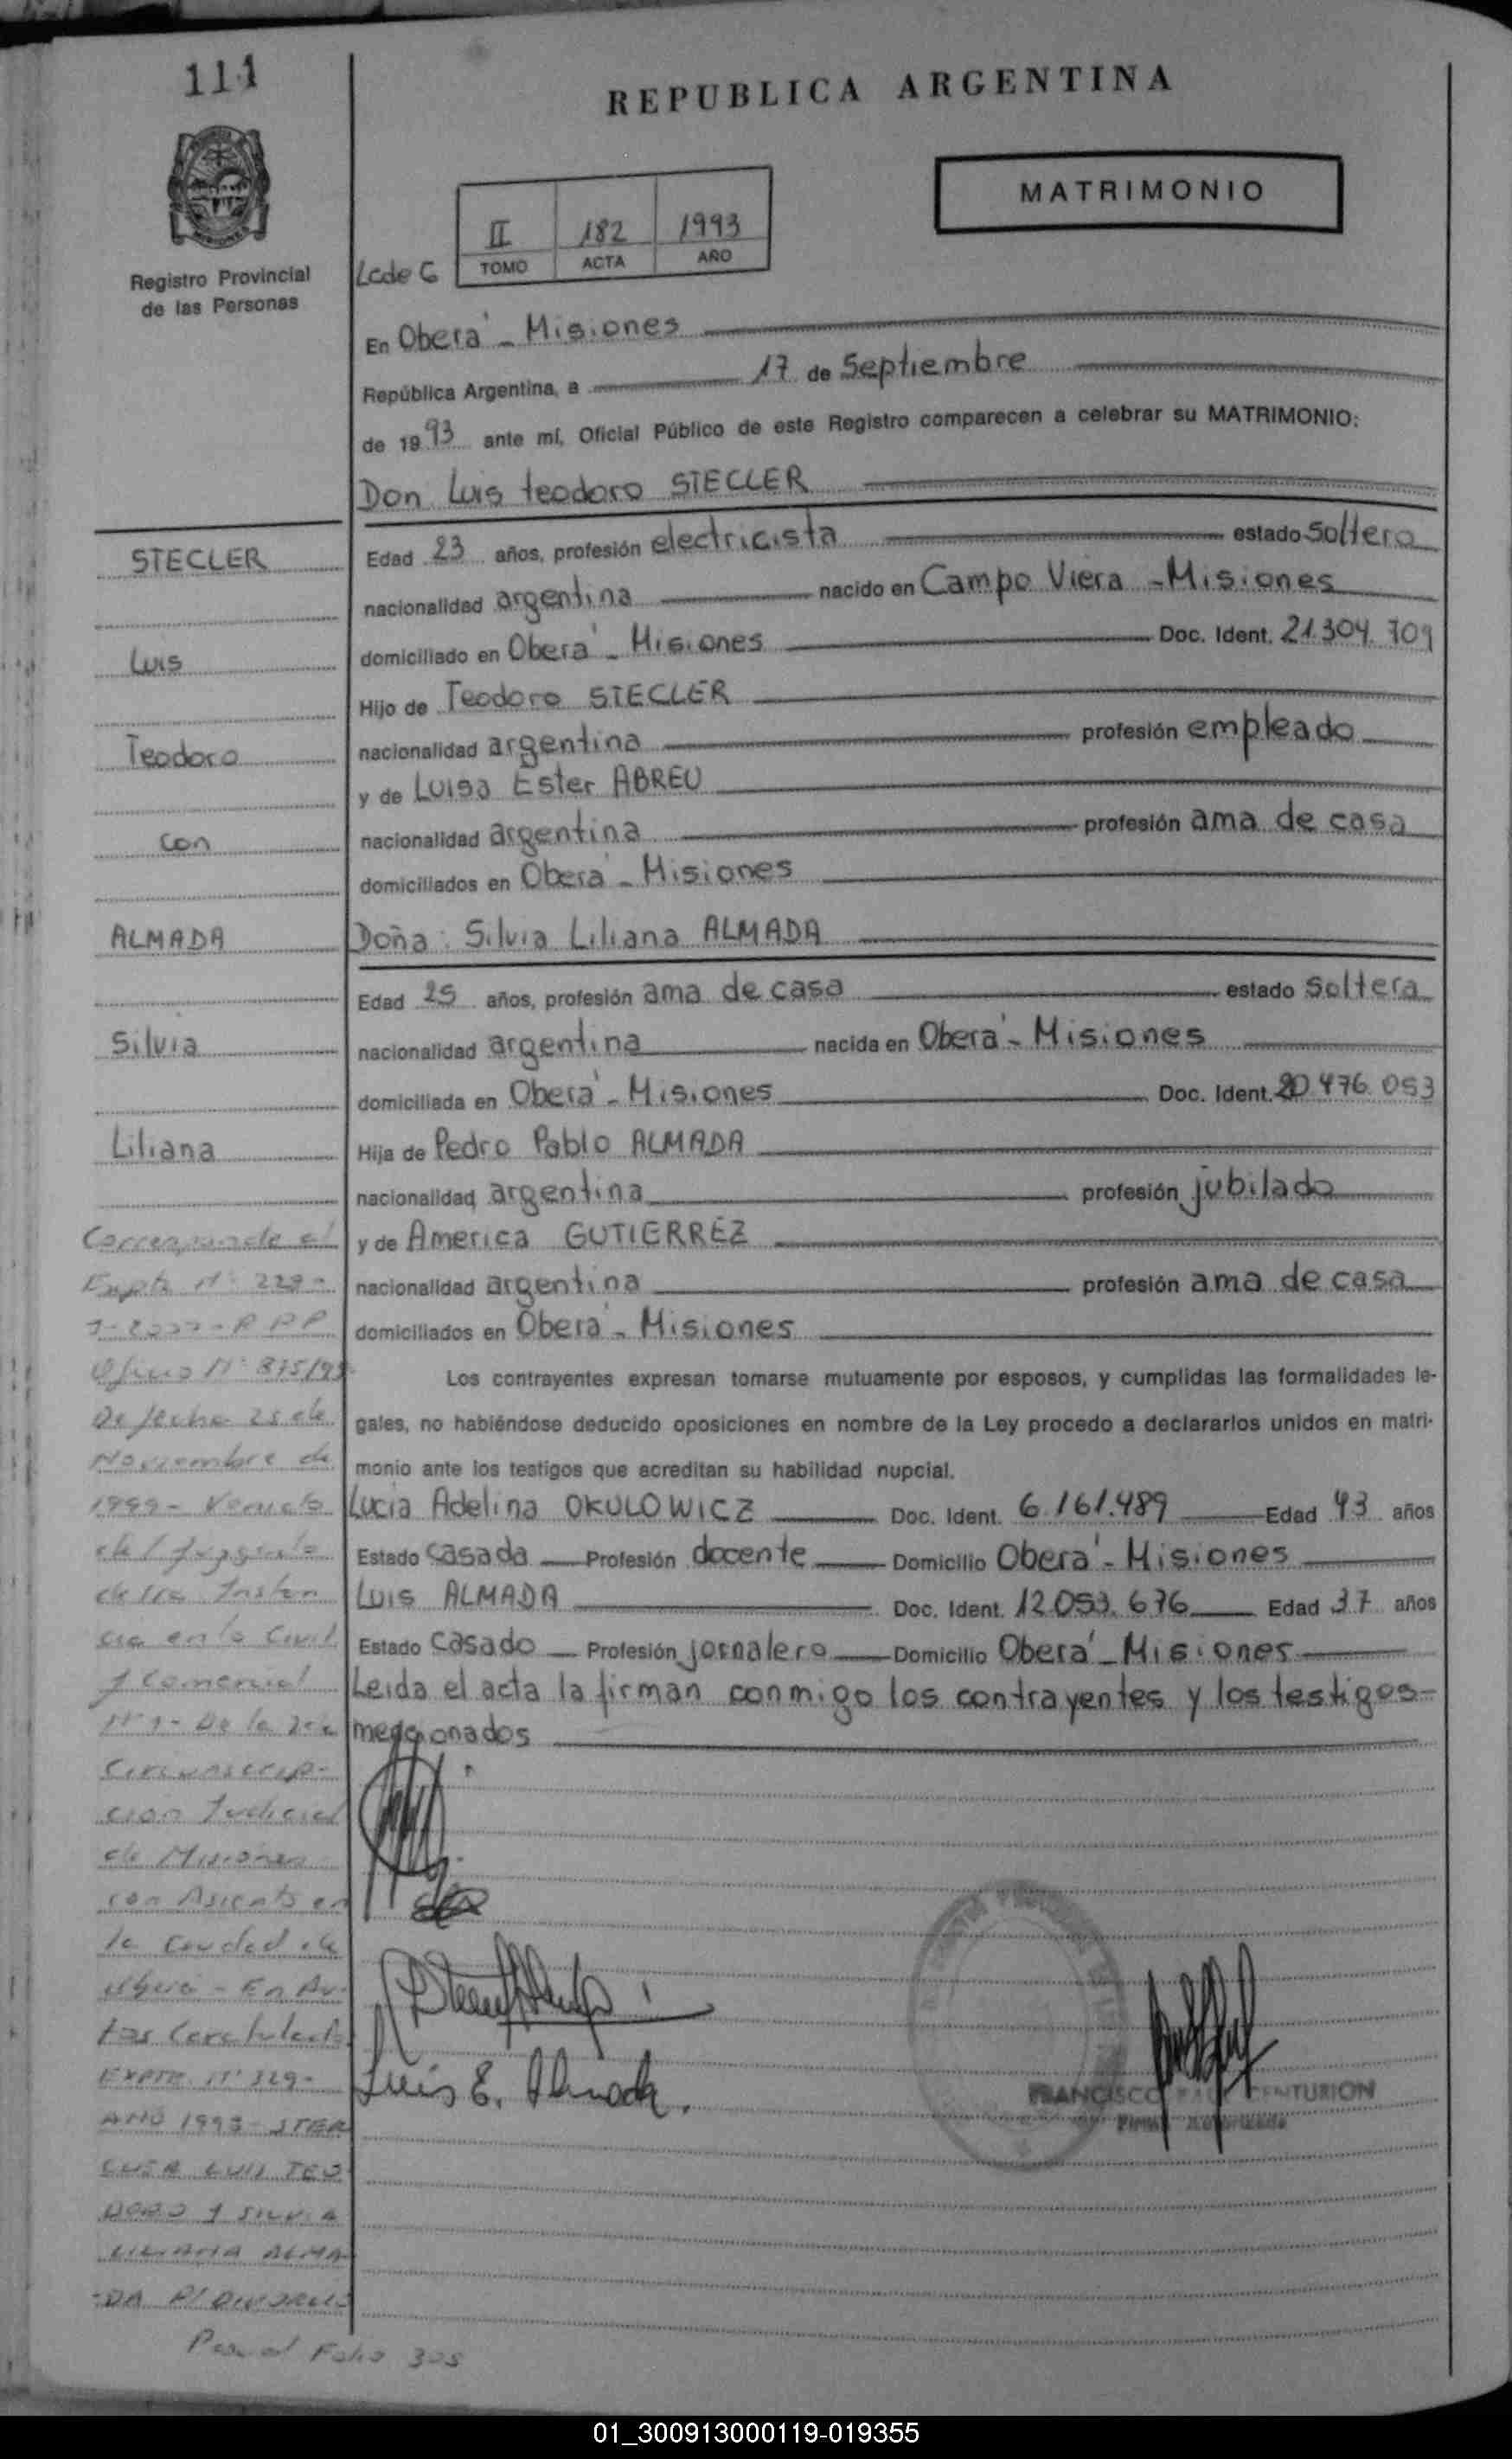 111
REPUBLICA ARGENTINA
MATRIMONIO
MISIONES
Registro Provincial
de las Personas
II 182 1993
TOMO ACTA AÑO
En Oberá - Misiones
República Argentina, a 17 de Septiembre
de 1993 ante mí, Oficial Público de este Registro comparecen a celebrar su MATRIMONIO:
Don Luis teodoro STECLER
STECLER
Luis
Teodoro
con
ALMADA
Silvia
Liliana
Edad 23 años, profesión electricista estado Soltero
nacionalidad argentina nacido en Campo Viera - Misiones
domiciliado en Oberá - Misiones Doc. Ident. 21.304.709
Hijo de Teodoro STECLER
nacionalidad argentina profesión empleado
y de Luisa Ester ABREU
nacionalidad argentina profesión ama de casa
domiciliados en Oberá - Misiones
Doña: Silvia Liliana ALMADA
Edad 25 años, profesión ama de casa estado Soltera
nacionalidad argentina nacida en Oberá - Misiones
domiciliada en Oberá - Misiones Doc. Ident. 20.476.053
Hija de Pedro Pablo ALMADA
nacionalidad argentina profesión jubilado
y de America GUTIERREZ
nacionalidad argentina profesión ama de casa
domiciliados en Oberá - Misiones
Los contrayentes expresan tomarse mutuamente por esposos, y cumplidas las formalidades le-
gales, no habiéndose deducido oposiciones en nombre de la Ley procedo a declararlos unidos en matri-
monio ante los testigos que acreditan su habilidad nupcial.
Lucia Adelina OKULOWICZ Doc. Ident. 6.161.489 Edad 43 años
Estado Casada Profesión docente Domicilio Oberá - Misiones
Luis ALMADA Doc. Ident. 12.053.676 Edad 37 años
Estado Casado Profesión jornalero Domicilio Oberá - Misiones
Leida el acta la firman conmigo los contrayentes y los testigos-
mencionados
Corresponde al
Expte N° 229-
Oficio N° 875/99
De fecha 25 de
Noviembre de
1999-
del Juzgado
de 1ra Instan
cia en lo Civil
y Comercial
N° 1- De la 2da
Circunscrip-
cion Judicial
de Misiones
con Asiento en
la Ciudad de
Oberá - En Au-
tos Caratulados
EXPTE N° 329-
AÑO 1993- STER
CLER LUIS TEO
DORO Y SILVIA
LILIANA ALMA
-DA P/ DIVORCIO
Pasa al Folio 305
Luis E. Almada.
FRANCISCO CENTURION
01_300913000119-019355